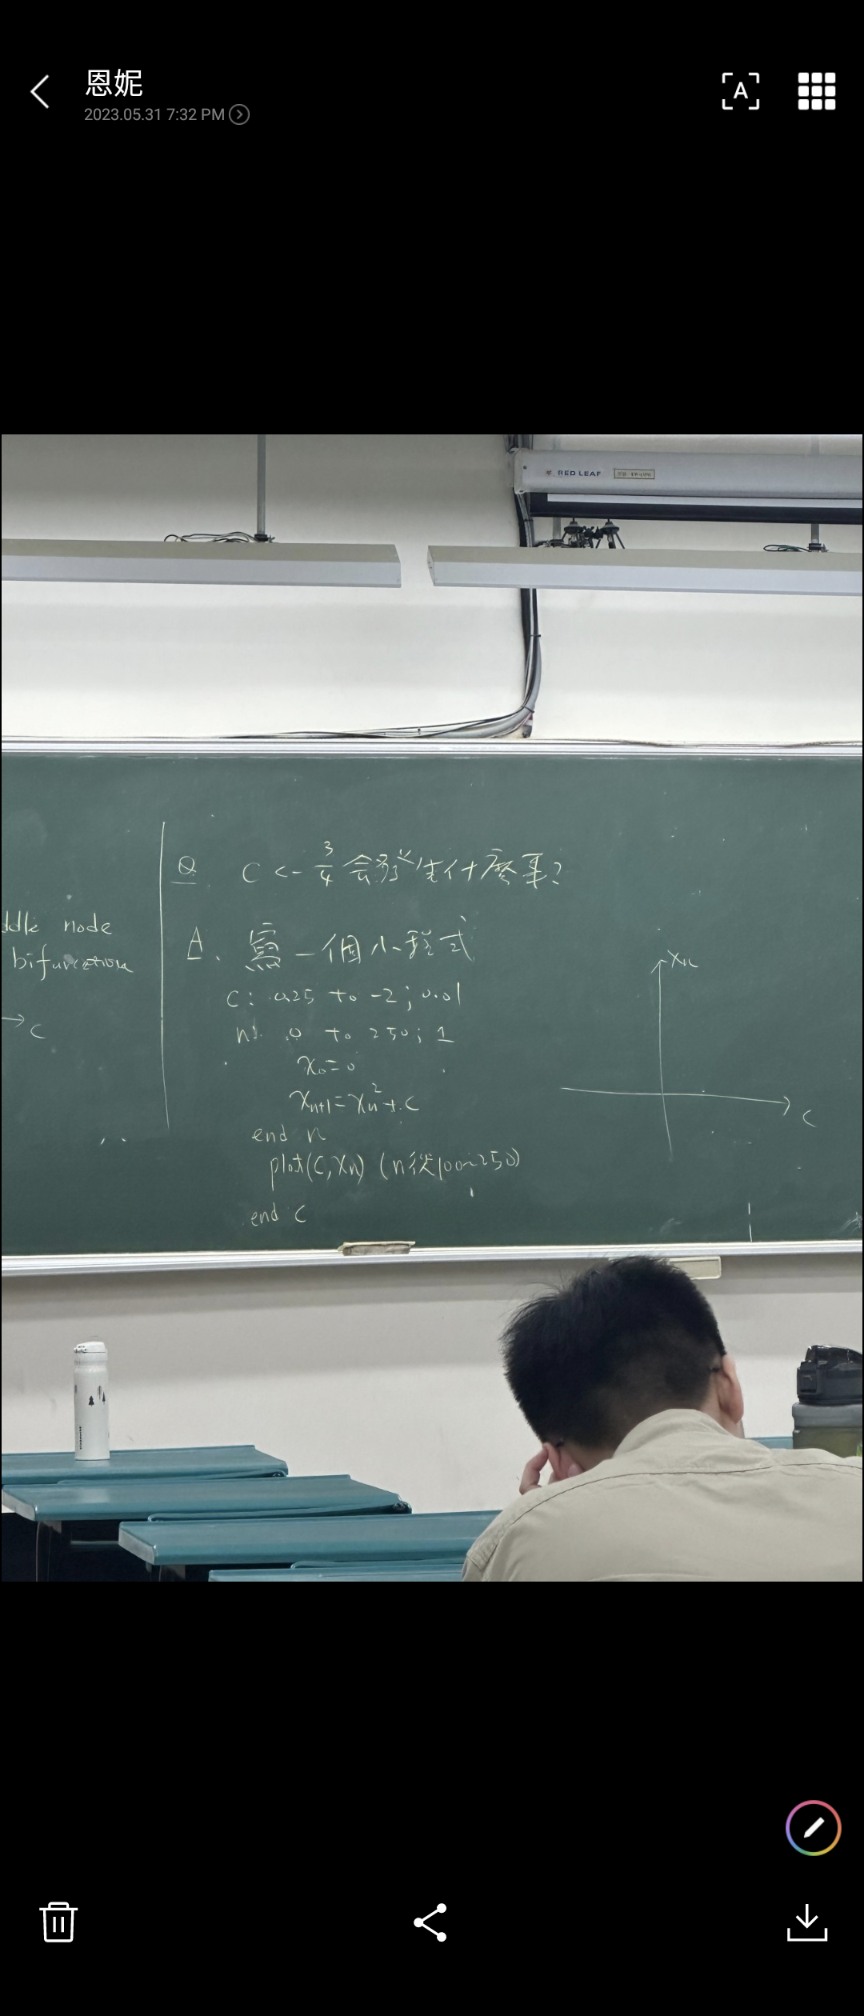 恩妮
2023.05.31 7:32 PM
A
RED LEAF
ddle node
bifurcation
→ C
Q C < - 3/4 会發生什麼事?
A. 寫一個小程式
C: 0.25 to -2; 0.01
n: 0 to 250; 1
x₀=0
xₙ₊₁=xₙ²+C
end n
plot(C, xₙ) (n從100~250)
end C
xₙ
C